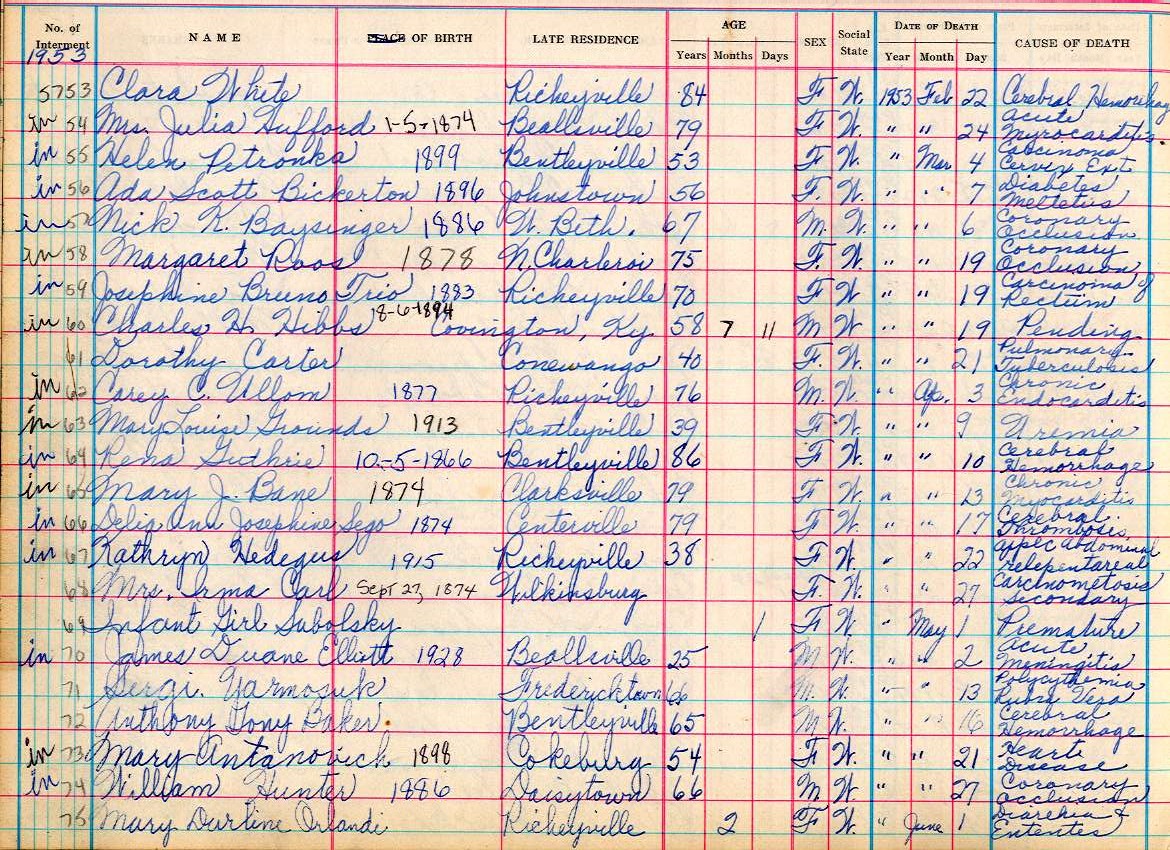 No. of Interment NAME PLACE OF BIRTH LATE RESIDENCE AGE Years Months Days SEX Social State DATE OF DEATH Year Month Day CAUSE OF DEATH
1953
5753 Clara White Richeyville 84 F W. 1953 Feb 22 Cerebral Hemorrhag
in 54 Mrs. Julia Hufford 1-5-1874 Beallsville 79 F W. " " 24 Acute Myrocarditis.
in 55 Helen Petronka 1899 Bentleyville 53 F W. " Mar 4 Carcinoma Cervix Ext.
in 56 Ada Scott Bickerton 1896 Johnstown 56 F. W. " " 7 Diabetes Meltetus
in 57 Nick K. Baysinger 1886 W. Beth. 67 M. W. " " 6 Coronary Occlusion
in 58 Margaret Roos 1878 N. Charleroi 75 F. W. " " 19 Coronary Occlusion
in 59 Josephine Bruno Trio 1883 Richeyville 70 F W. " " 19 Carcinoma of Rectum
in 60 Charles H. Hibbs 8-6-1894 Covington, Ky 58 7 11 M W. " " 19 Pending
61 Dorothy Carter Conewango 40 F. W. " " 21 Pulmonary Tuberculosis
in 62 Carey C. Ullom 1877 Richeyville 76 M. W. " Ap. 3 Chronic Endocarditis
in 63 Mary Louise Grounds 1913 Bentleyville 39 F W. " " 9 Uremia
in 64 Rena Guthrie 10-5-1866 Bentleyville 86 F W. " " 10 Cerebral Hemorrhage
in 65 Mary J. Bane 1874 Clarksville 79 F W. " " 13 Chronic Myocarditis
in 66 Delia Ann Josephine Sego 1874 Centerville 79 F W. " " 17 Cerebral Thrombosis.
in 67 Kathryn Hedegus 1915 Richeyville 38 F W. " " 22 abdominal
68 Mrs. Irma Carl Sept 27, 1874 Wilkinsburg F. W. " " 27 Carcinometosis Secondary
69 Infant Girl Sobolsky 1 F W. " May 1 Premature
in 70 James Duane Elliott 1928 Beallsville 25 M W. " " 2 Acute Meningitis
71 Sergi. Yarmosuk Fredericktown 66 M. W. " " 13 Polycythemia Rubra Vera
72 Anthony Tony Baker Bentleyville 65 M W. " " 16 Cerebral Hemorrhage
in 73 Mary Antanovich 1898 Cokeburg 54 F W. " " 21 Heart Disease
in 74 William Hunter 1886 Daisytown 66 M W. " " 27 Coronary Occlusion
75 Mary Durline Orlandi Richeyville 2 F W. " June 1 Diarehia & Ententes